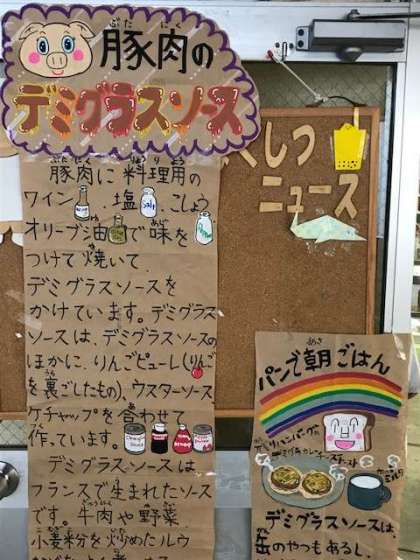 豚肉の
デミグラスソース
豚肉に料理用の
ワイン、塩、こしょう
オリーブ油で味を
つけて焼いて、
デミグラスソースを
かけています。デミグラス
ソースは、デミグラスソースの
ほかに、りんごピューレ(りんご
を裏ごしたもの)、ウスターソース
ケチャップを合わせて
作っています。
デミグラスソースは
フランスで生まれたソース
です。牛肉や野菜、
小麦粉を炒めたルウ
しつ
ニュース
パンで朝ごはん
デミグラスソースは
缶のやつもあるし、